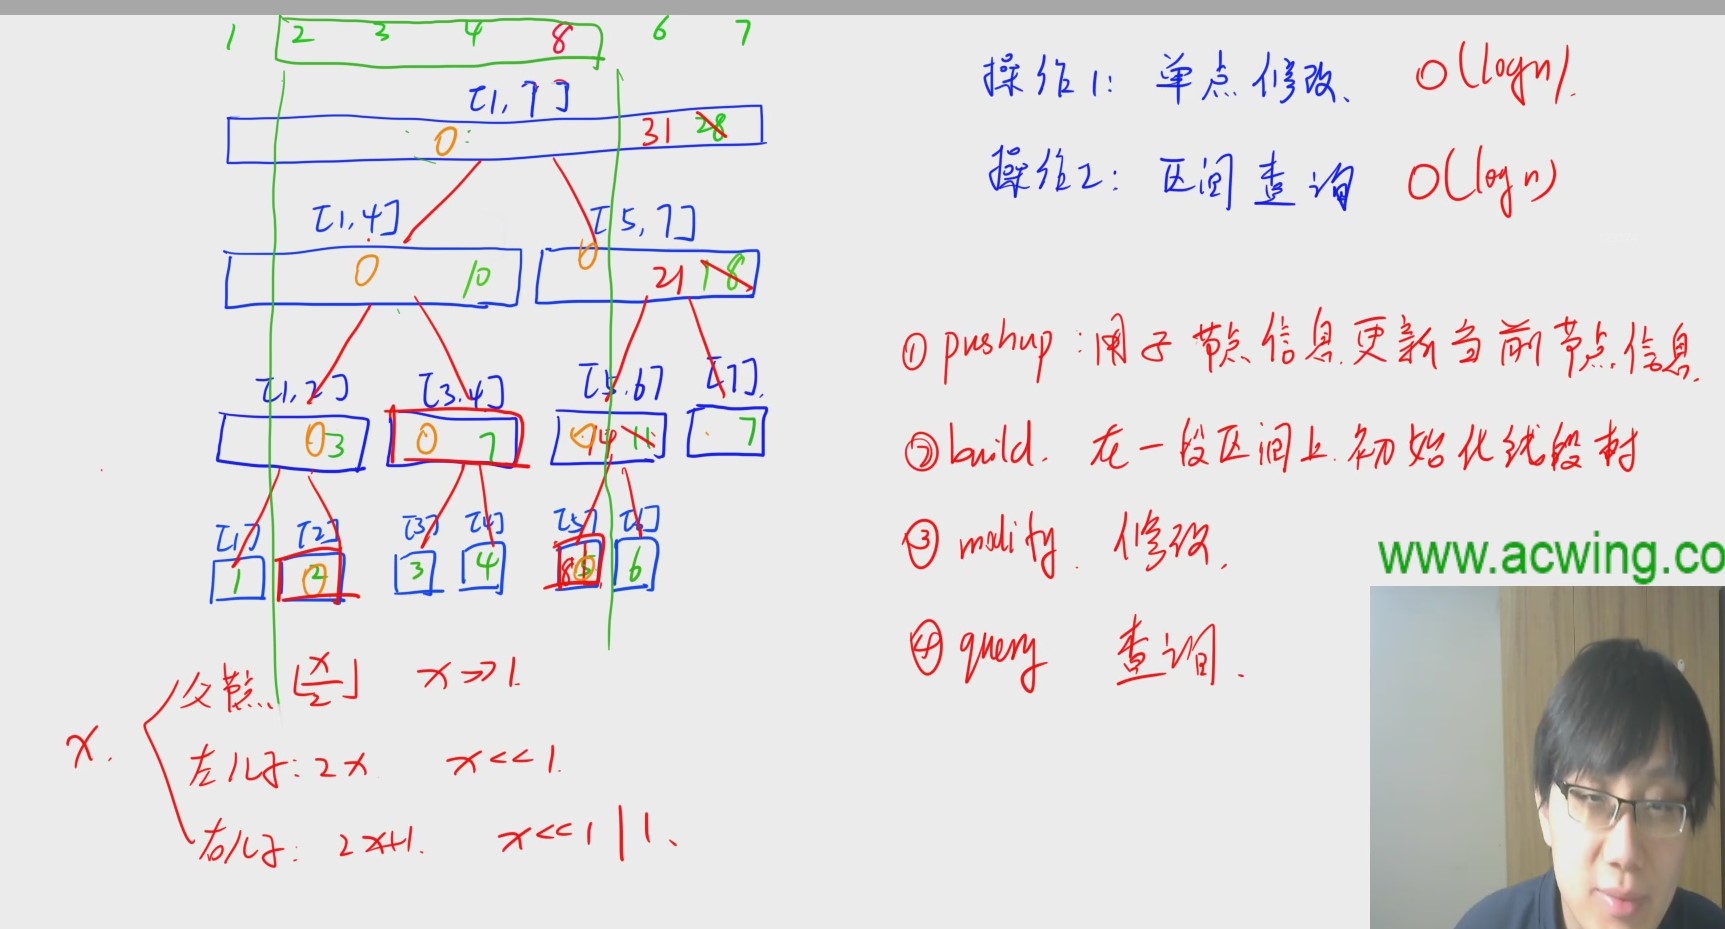 1 2 3 4 8 6 7
[1,7]
0 31 28
[1,4] [5,7]
0 10 0 21 18
[1,2] [3,4] [5,6] [7]
03 0 7 0 14 11 7
[1] [2] [3] [4] [5] [6]
1 2 0 3 4 8 5 0 6
父节点 ⌊x/2⌋ x>>1.
x.
左儿子: 2x x<<1.
右儿子: 2x+1. x<<1|1、
操作1: 单点修改、 O(logn).
操作2: 区间查询 O(logn)
① pushup: 用子节点信息更新当前节点信息.
② build. 在一段区间上初始化线段树
③ modify. 修改.
www.acwing.co
④ query 查询.